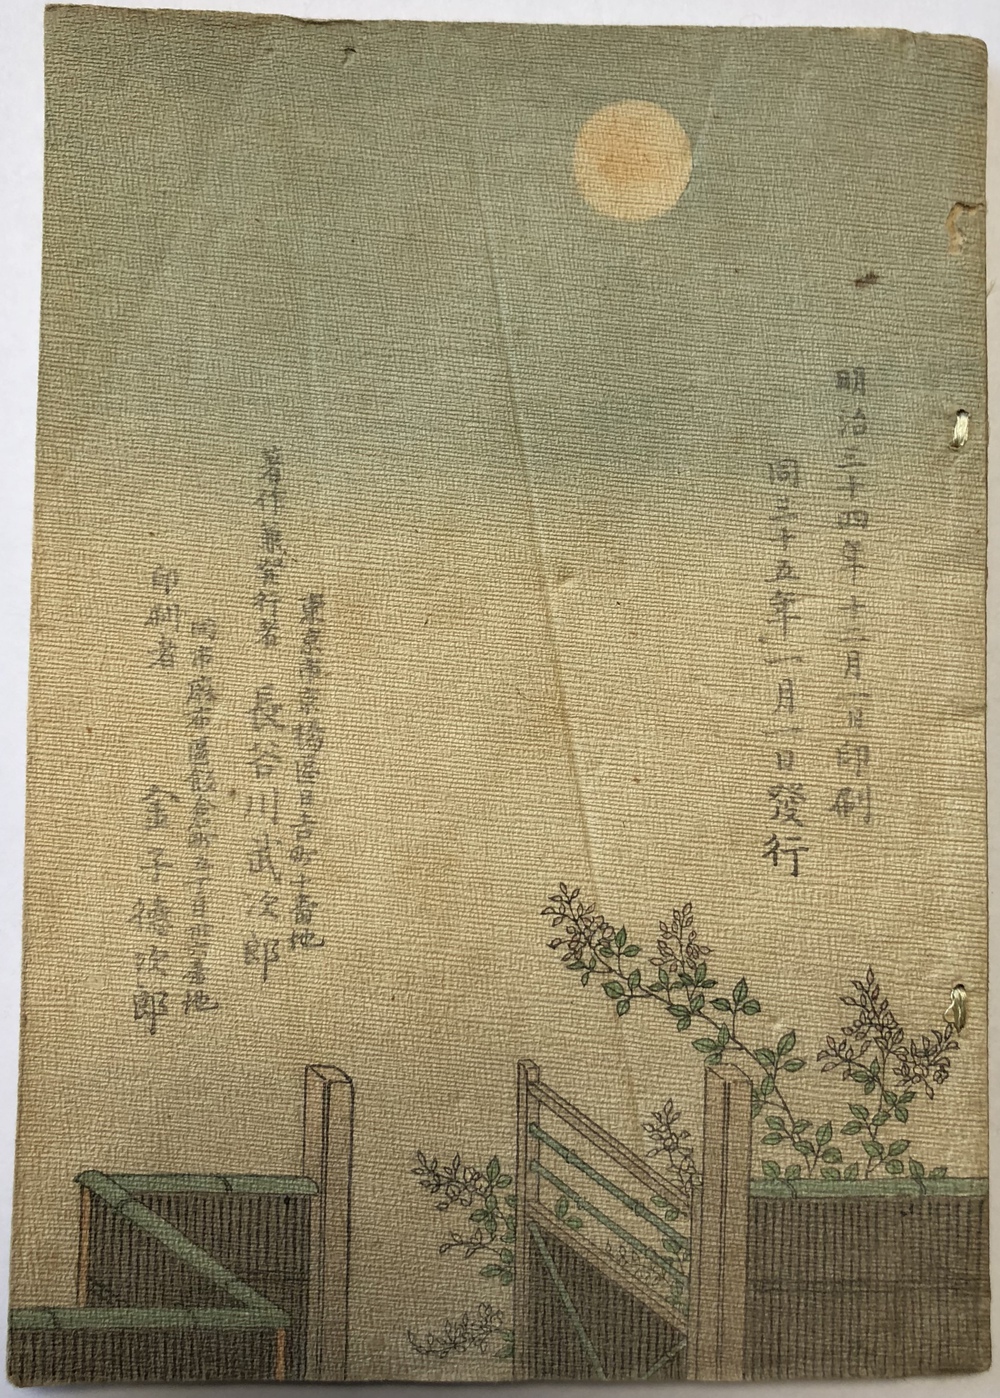 明治三十四年十二月一日印刷
同三十五年一月一日發行
東京市京橋區日吉町十番地
著作兼發行者 長谷川武次郎
同市麻布區飯倉町五丁目 番地
印刷者 金子德次郎